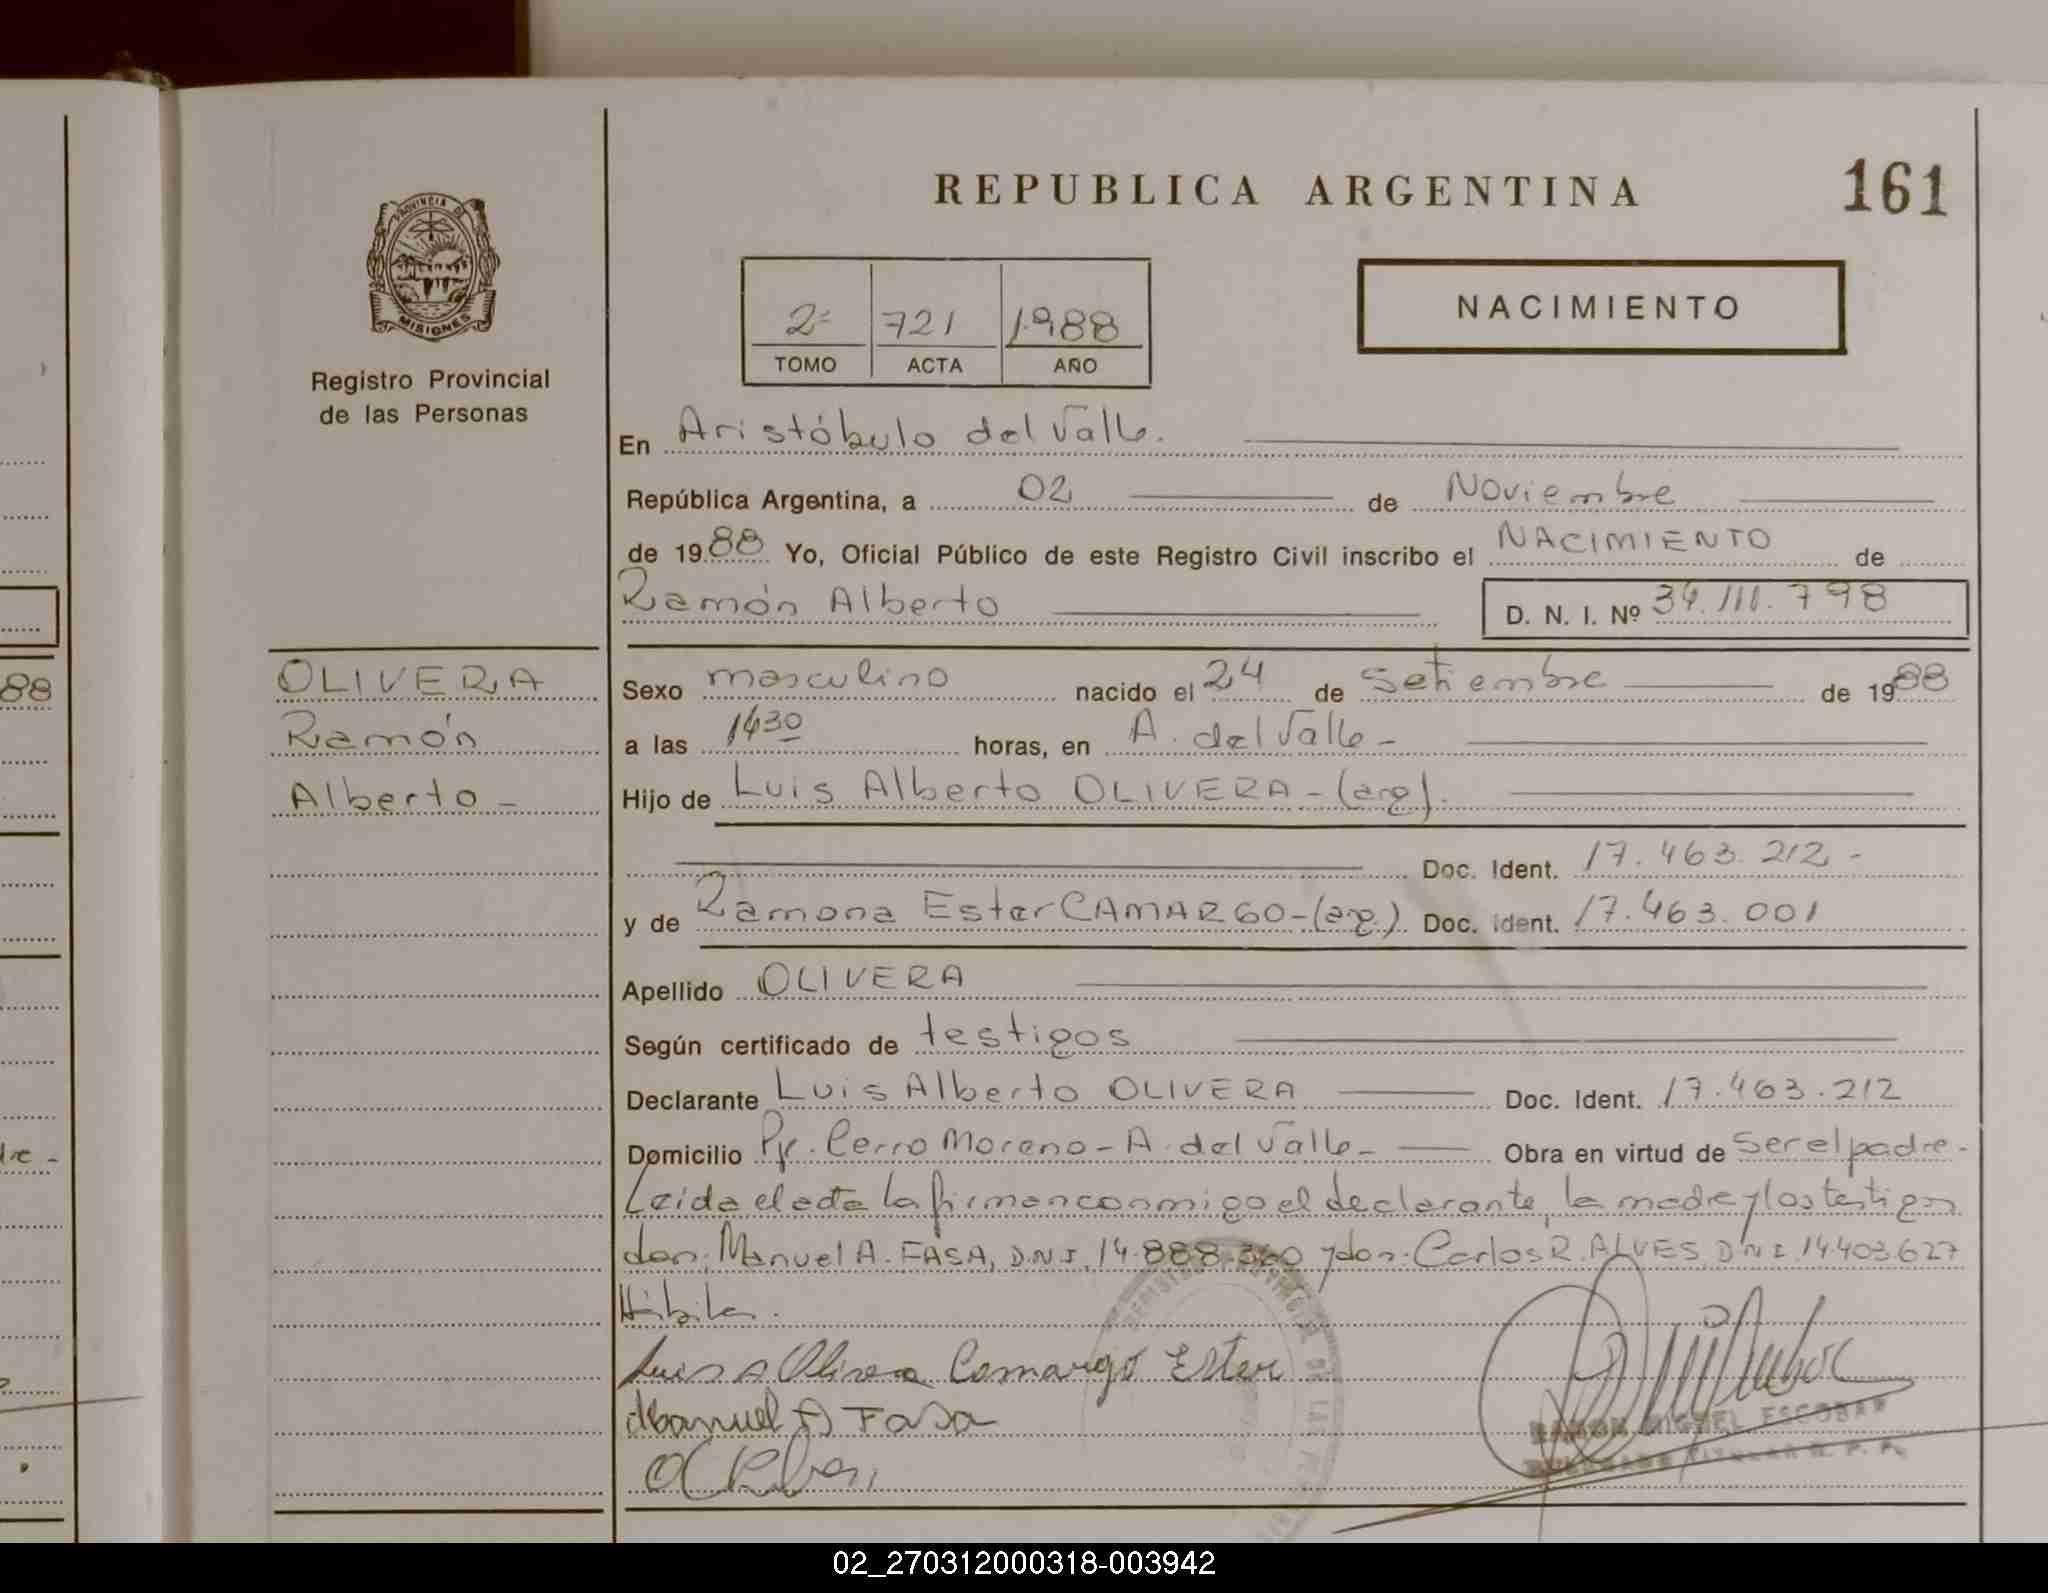 REPUBLICA ARGENTINA
161
PROVINCIA DE
MISIONES
Registro Provincial
de las Personas
2ª 721 1988
TOMO ACTA AÑO
NACIMIENTO
En Aristóbulo del Valle.
República Argentina, a 02 de Noviembre
de 1988 Yo, Oficial Público de este Registro Civil inscribo el NACIMIENTO de
Ramón Alberto D. N. I. Nº 34.111.798
88
OLIVERA
Ramón
Alberto -
Sexo masculino nacido el 24 de Setiembre de 1988
a las 1430 horas, en A. del Valle -
Hijo de Luis Alberto OLIVERA - (arg).
Doc. Ident. 17.463.212 -
y de Ramona Ester CAMARGO - (arg.) Doc. Ident. 17.463.001
Apellido OLIVERA
Según certificado de testigos
Declarante Luis Alberto OLIVERA Doc. Ident. 17.463.212
Domicilio Pje. Cerro Moreno - A. del Valle - Obra en virtud de ser el padre -
Leida el acta la firman conmigo el declarante, la madre y los testigos
don: Manuel A. FASA, D.N.I. 14.888.360 y don: Carlos R. ALVES D.N.I. 14.403.627
Hábiles.
Luis A Olivera Camargo Ester
Manuel A Fasa
RAMON MIGUEL ESCOBAR
02_270312000318-003942